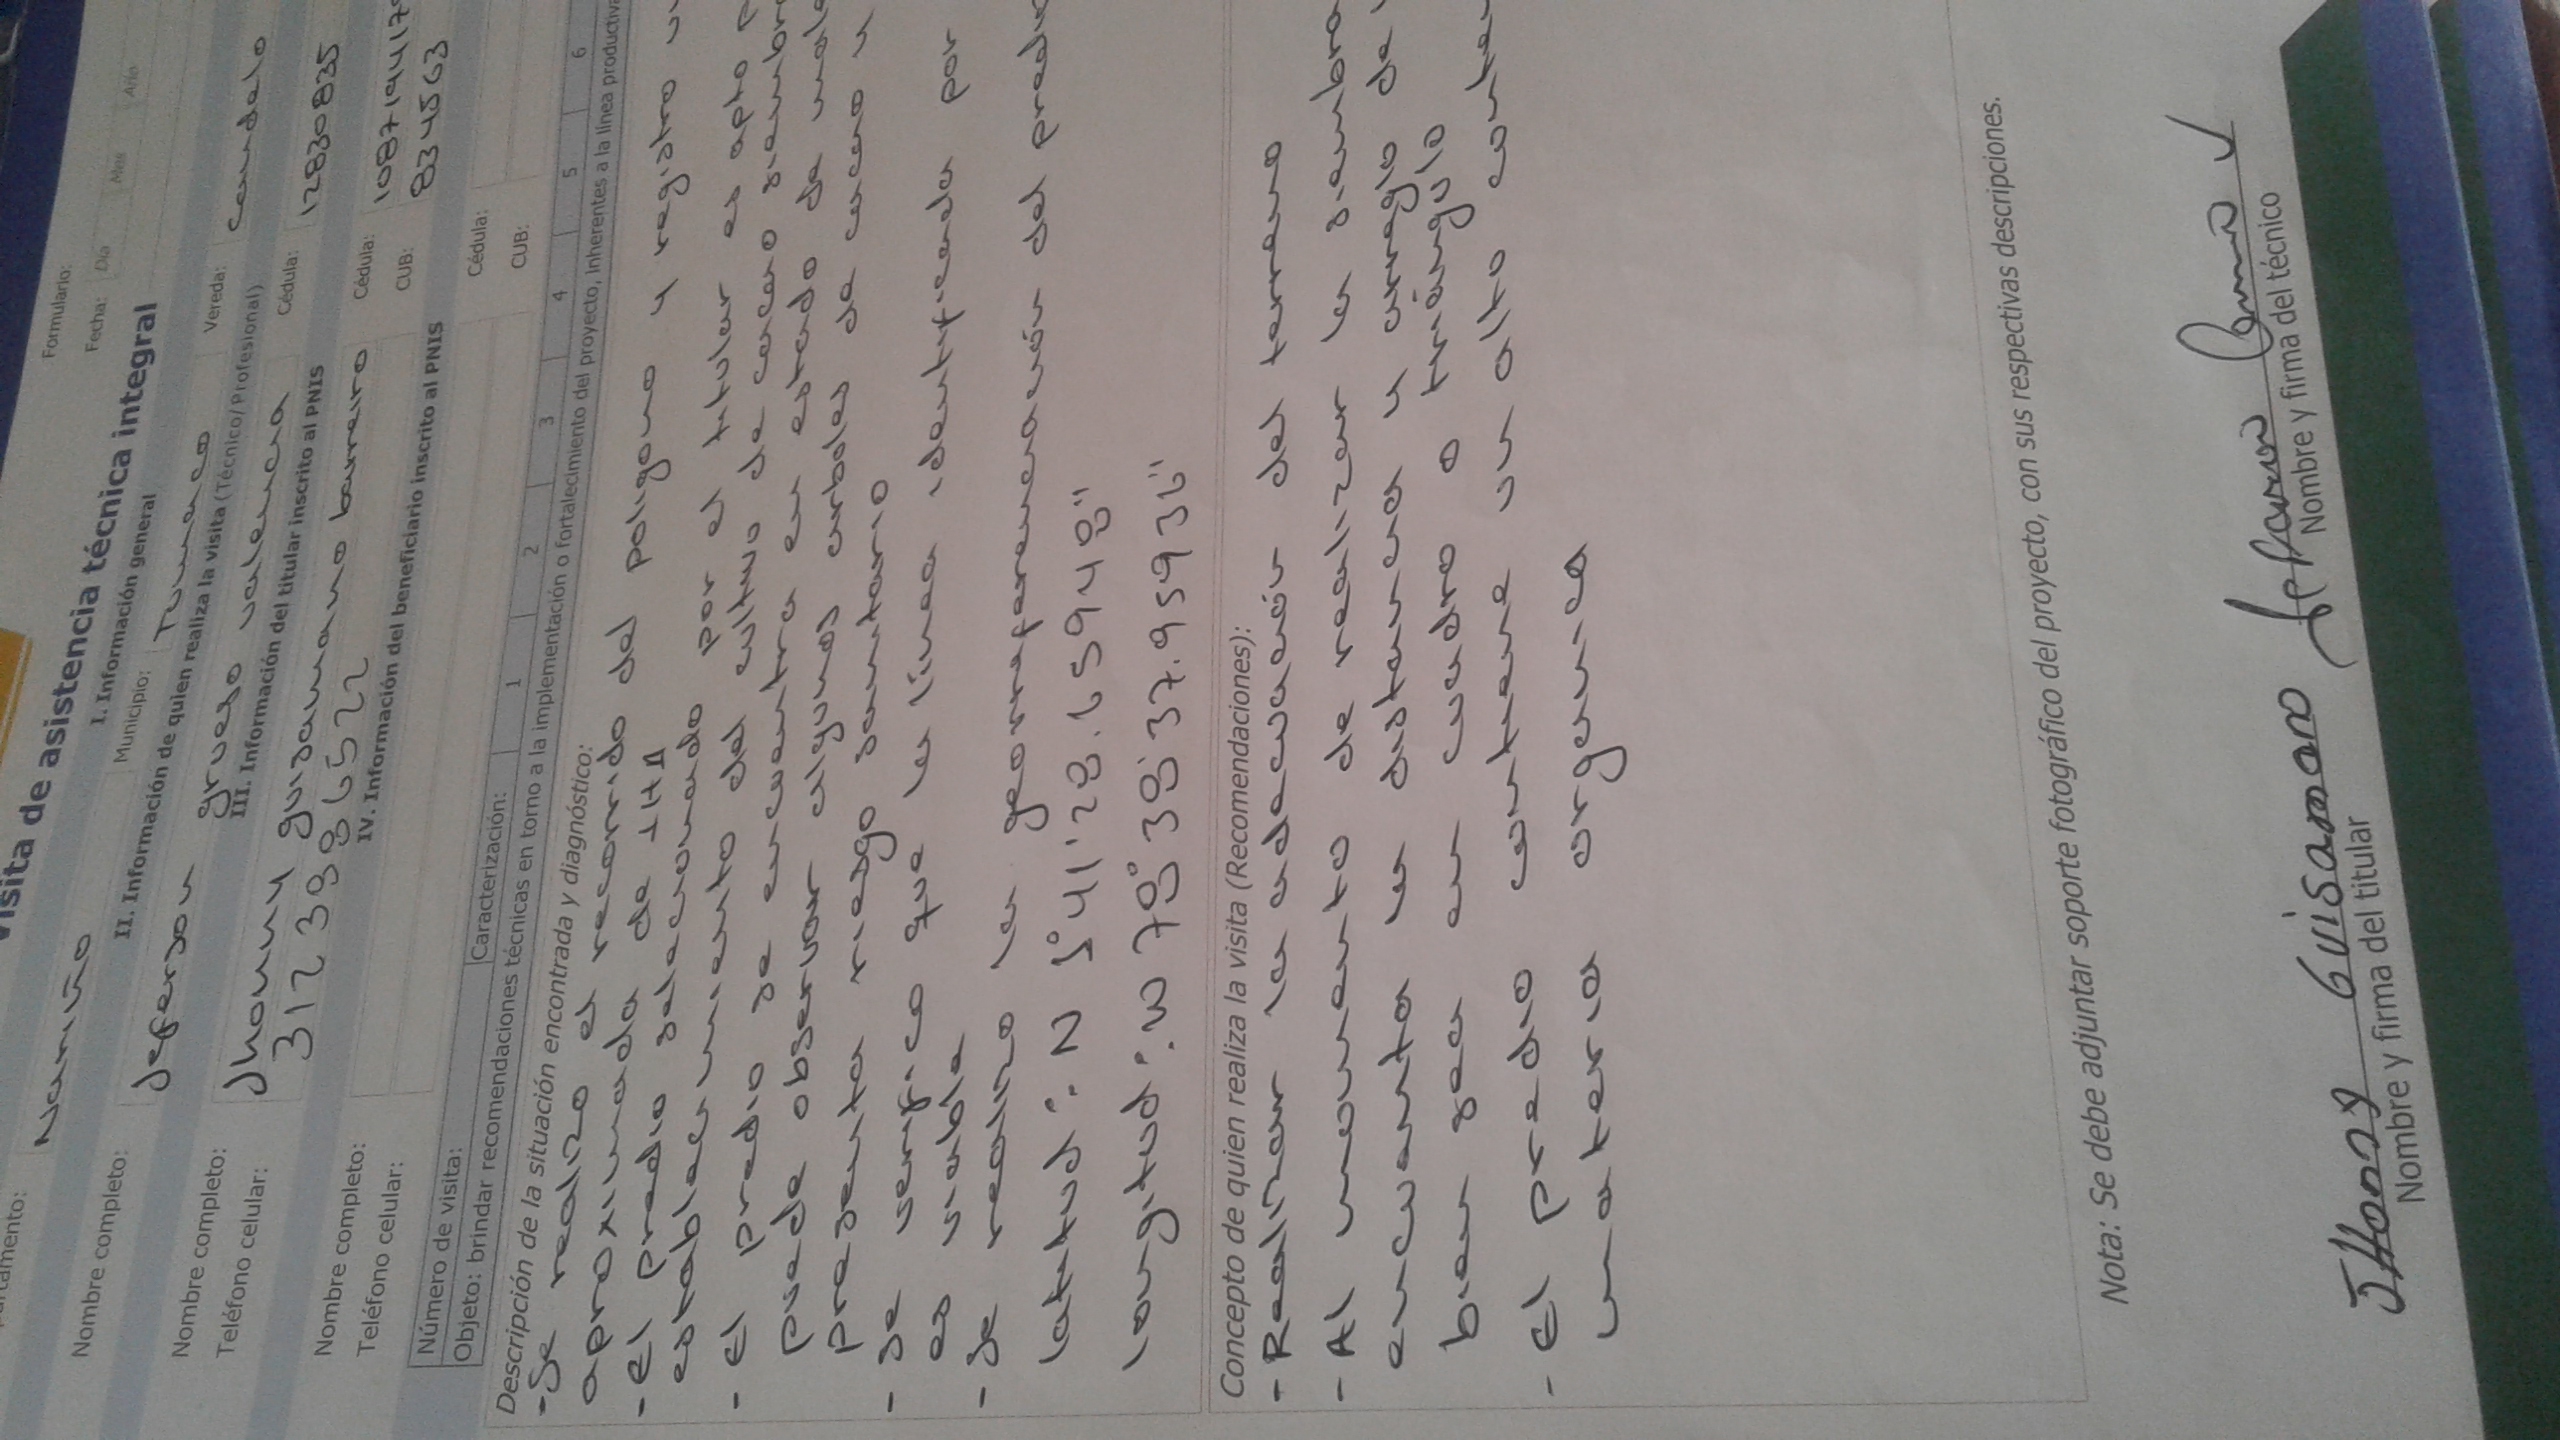 Formulario:
Visita de asistencia técnica integral
Fecha: Día Mes Año
I. Información general
Nariño Municipio: Tumaco Vereda: Candelo
II. Información de quien realiza la visita (Técnico/Profesional)
Nombre completo: Jeferson grueso valencia Cédula: 12830835
III. Información del titular inscrito al PNIS
Nombre completo: Jhonny guisamano barreiro Cédula: 108719417
Teléfono celular: 3123986522 CUB: 834563
IV. Información del beneficiario inscrito al PNIS
Nombre completo: Cédula:
Teléfono celular: CUB:
Número de visita: Caracterización: 1 2 3 4 5 6
Objeto: brindar recomendaciones técnicas en torno a la implementación o fortalecimiento del proyecto, inherentes a la línea productiva
Descripción de la situación encontrada y diagnóstico:
- Se realizo el recorrido del poligono y registro
aproximada de 1HA
- El predio selecionado por el titular es apto
establecimiento del cultivo de cacao
- El predio se encuentra en estado de
puede observar algunos arboles de cacao
presenta riesgo sanitario
- Se verifico que la línea identificada por
es viable
- Se realizo la georreferenciación del predio
latitud: N 1°41'28.65948"
longitud: W 78°38'37.95936"
Concepto de quien realiza la visita (Recomendaciones):
- Realizar la adecuación del terreno
- Al momento de realizar la siembra
encuenta la distancia y arreglo de
bien sea en cuadro o triángulo
- El predio contiene un alto
materia organica
Nota: Se debe adjuntar soporte fotográfico del proyecto, con sus respectivas descripciones.
JHonny Guisamano
Nombre y firma del titular
Nombre y firma del técnico